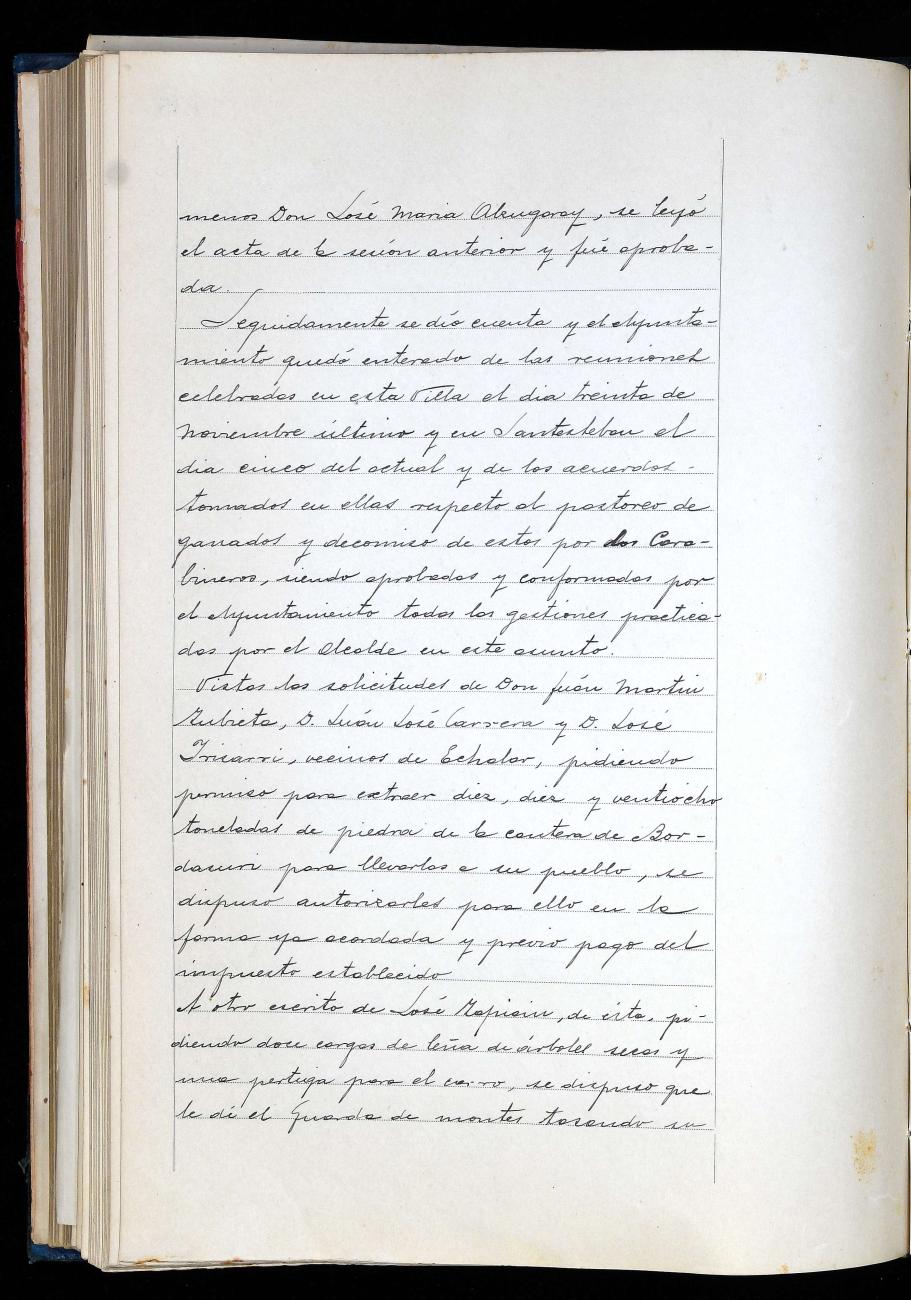 menos Don José Maria Alzugaray, se leyó
el acta de la sesión anterior y fué aproba-
da.
Seguidamente se dío cuenta y el Ayunta-
miento quedó enterado de las reuniones
celebradas en esta Villa el dia treinta de
Noviembre último y en Santesteban el
dia cinco del actual y de los acuerdos
tomados en ellas respecto al pastoreo de
ganados y decomiso de estos por los Cara-
bineros, siendo aprobadas y conformadas por
el Ayuntamiento todas las gestiones practica-
das por el Alcalde en este asunto.
Vistas las solicitudes de Don Juán Martin
Zubieta, D. Juán José Carrera y D. José
Irisarri, vecinos de Echalar, pidiendo
permiso para extraer diez, diez y ventiocho
toneladas de piedra de la cantera de Bor-
dasuri para llevarlas a su pueblo, se
dispuso autorizarles para ello en la
forma ya acordada y previo pago del
impuesto establecido
A otro escrito de José Zapiain, de ésta, pi-
diendo doce cargas de leña de árboles secos y
una pertiga para el carro, se dispuso que
le dé el Guarda de montes tasando su